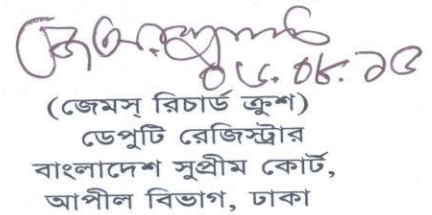 ০৬.০৮.১৫
(জেমস্ রিচার্ড ক্রুশ)
ডেপুটি রেজিস্ট্রার
বাংলাদেশ সুপ্রীম কোর্ট,
আপীল বিভাগ, ঢাকা